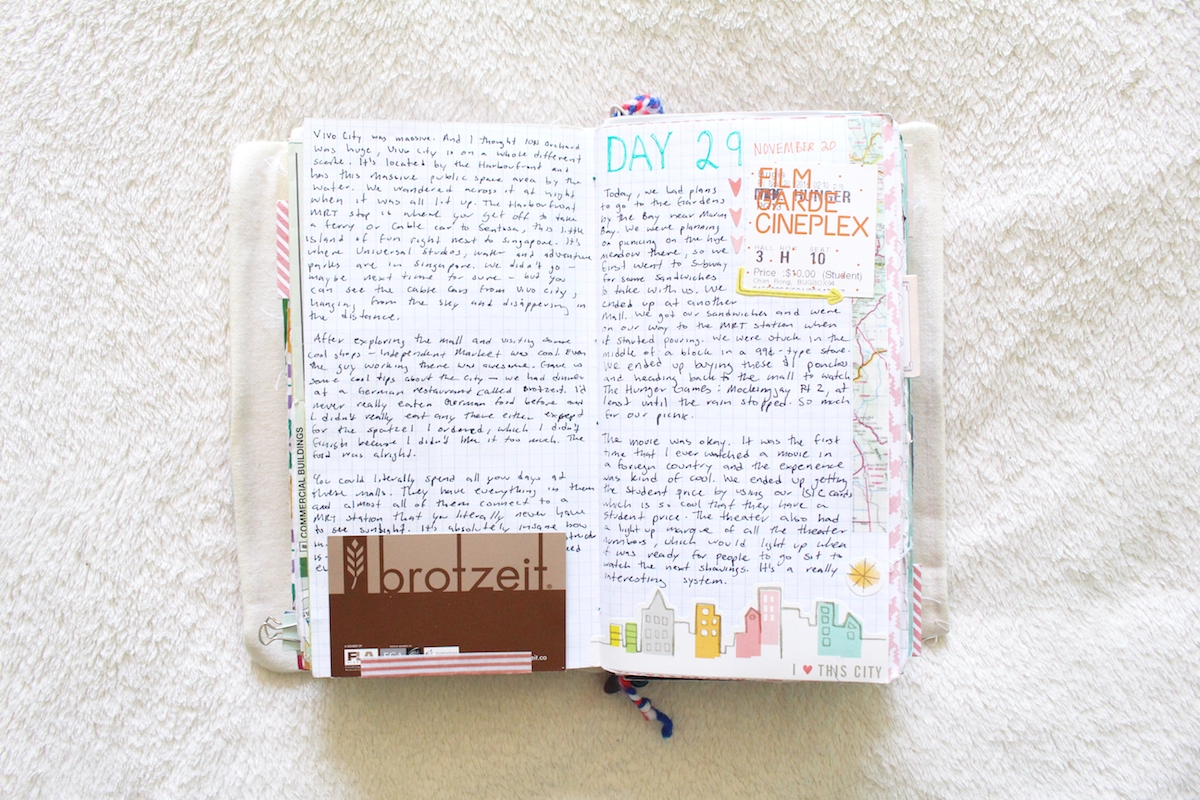 Vivo City was massive. And I thought ION Orchard
was huge, Vivo City is on a whole different
scale. It's located by the Harbourfront and
has this massive public space area by the
water. We wandered across it at night
when it was all lit up. The Harbourfront
MRT stop is where you get off to take
a ferry or cable car to Sentosa, this little
island of fun right next to Singapore. It's
where Universal Studios, water and adventure
parks are in Singapore. We didn't go -
maybe next time for sure - but you
can see the cable cars from Vivo City,
hanging from the sky and disappearing in
the distance.
After exploring the mall and visiting some
cool shops - Independent Market was cool. Even
the guy working there was awesome. Gave us
some cool tips about the city - we had dinner
at a German restaurant called Brotzeit. I'd
never really eaten German food before and
I didn't really eat any there either except
for the spatzel I ordered, which I didn't
finish because I didn't like it too much. The
food was alright.
You could literally spend all your days at
these malls. They have everything in them
and almost all of them connect to a
MRT station that you literally never have
to see sunlight. It's absolutely insane how
brotzeit®
COMMERCIAL BUILDINGS
DAY 29
NOVEMBER 20
FILM
GARDE
CINEPLEX
HUNGER
3 . H 10
Price :$10.00 (Student)
Today, we had plans
to go to the Gardens
by the Bay near Marina
Bay. We were planning
on picnicing on the huge
meadow there, so we
first went to Subway
for some sandwiches
to take with us. We
ended up at another
mall. We got our sandwiches and were
on our way to the MRT station when
it started pouring. We were stuck in the
middle of a block in a 99¢-type store.
We ended up buying these $1 ponchos
and heading back to the mall to watch
The Hunger Games: Mockingjay Pt 2, at
least until the rain stopped. So much
for our picnic.
The movie was okay. It was the first
time that I ever watched a movie in
a foreign country and the experience
was kind of cool. We ended up getting
the student price by using our ISIC cards
which is so cool that they have a
student price. The theater also had
a light up marque of all the theater
numbers, which would light up when
it was ready for people to go sit to
watch the next showings. It's a really
interesting system.
I ♥ THIS CITY